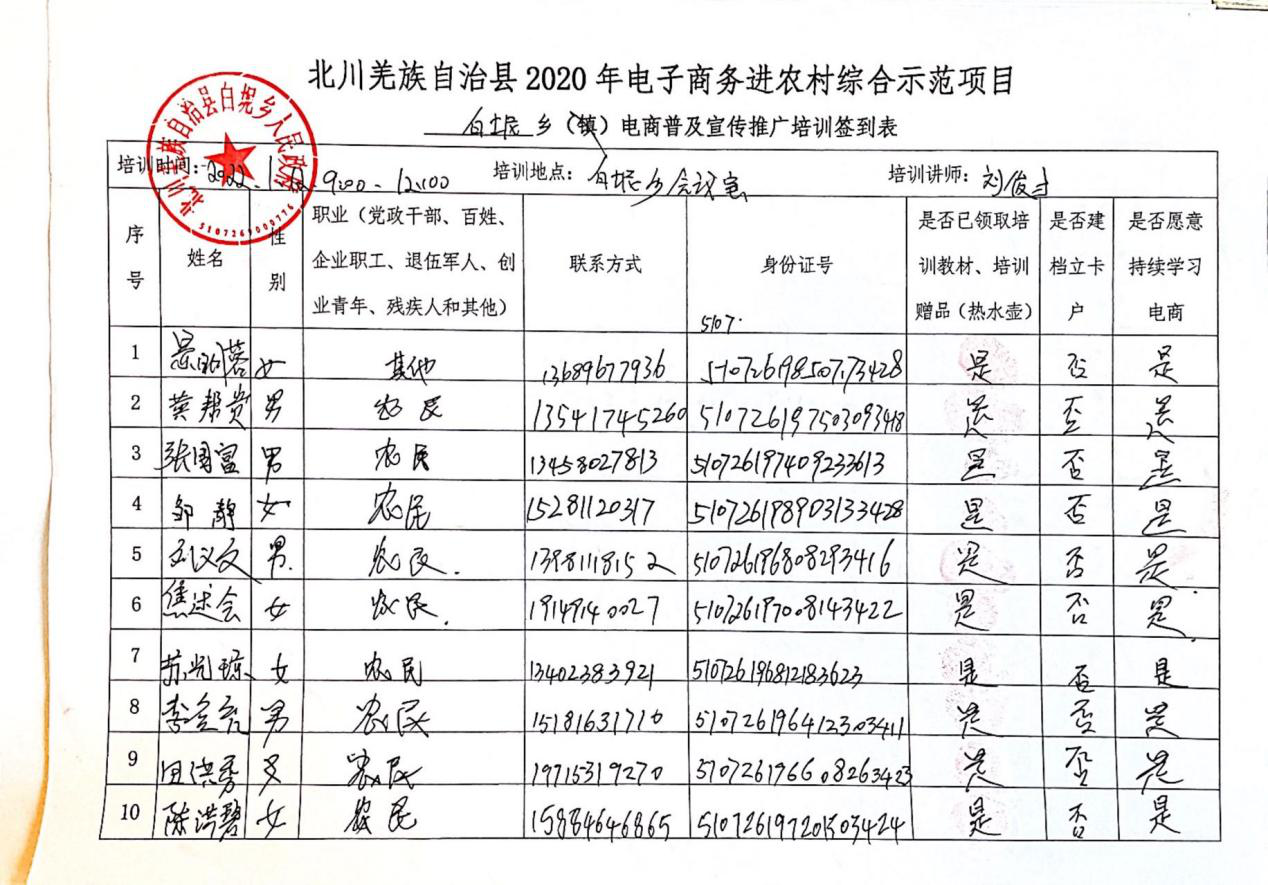 北川羌族自治县 2020 年电子商务进农村综合示范项目
白坭乡（镇）电商普及宣传推广培训签到表
北川羌族自治县白坭乡人民政府
5107269000776
培训时间： 9:00-12:00 培训地点：白坭乡会议室 培训讲师：刘俊
序号 姓名 性别 职业（党政干部、百姓、企业职工、退伍军人、创业青年、残疾人和其他） 联系方式 身份证号 是否已领取培训教材、培训赠品（热水壶） 是否建档立卡户 是否愿意持续学习电商
5107.
1 女 其他 13689677936 是 否 是
2 黄帮贵 男 农民 13541745260 510726197503093418 是 否 是
3 张国富 男 农民 13458027813 510726197409233613 是 否 是
4 邹静 女 农民 15281120317 510726198903133428 是 否 是
5 男. 农民. 13981118152 510726196808293416 是 否 是
6 焦述会 女 农民. 19149140027 510726197008143422 是 否 是.
7 苏光琼 女 农民 13402383921 510726196812183623 是 否 是
8 男 农民 15181631710 510726196412303411 是 否 是
9 田洪秀 农民 19715319270 510726196608263423 是 否 是
10 陈洪碧 女 农民 15884646865 是 否 是